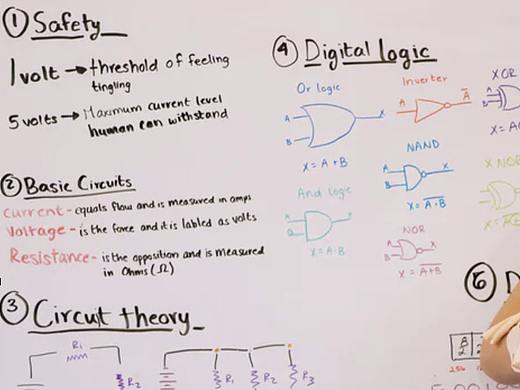 ① Safety
1 volt → threshold of feeling
tingling
5 volts → Maximum current level
human can withstand
② Basic Circuits
Current - equals flow and is measured in amps
Voltage - is the force and it is labled as volts
Resistance - is the opposition and is measured
in Ohms (Ω)
③ Circuit theory
R1
R2
R1
R2
R3
④ Digital logic
Or logic
A
B
X
X = A + B
Inverter
A
A̅
XOR
A
B
NAND
A
B
X
X = A̅·̅B̅
And logic
A
X
X = A·B
NOR
A
B
X
X = A̅+̅B̅
X NOR
⑤ D
B
2
256